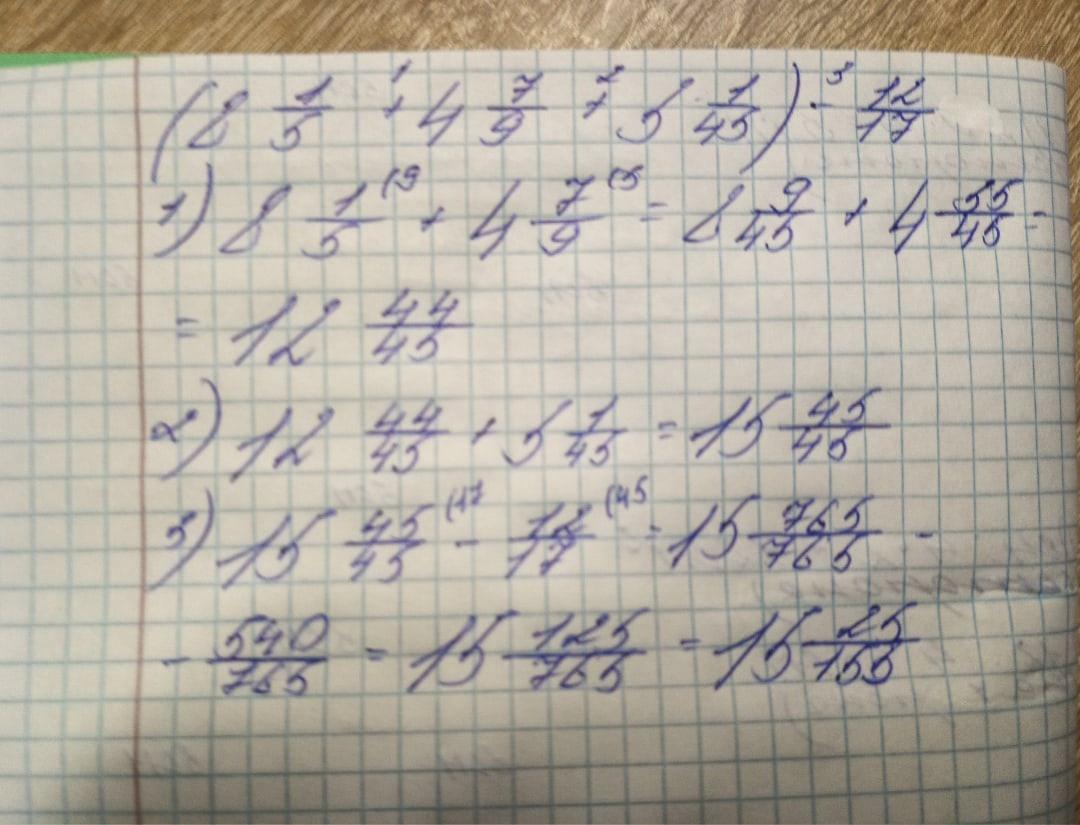 (8 1/5 +¹ 4 7/9 +² 3 1/45) -³ 12/17
1) 8 1/5 (9 + 4 7/9 (5 = 8 9/45 + 4 35/45 =
= 12 44/45
2) 12 44/45 + 3 1/45 = 15 45/45
3) 15 45/45 (17 - 12/17 (45 = 15 765/765 -
- 540/765 = 15 125/765 = 15 25/155